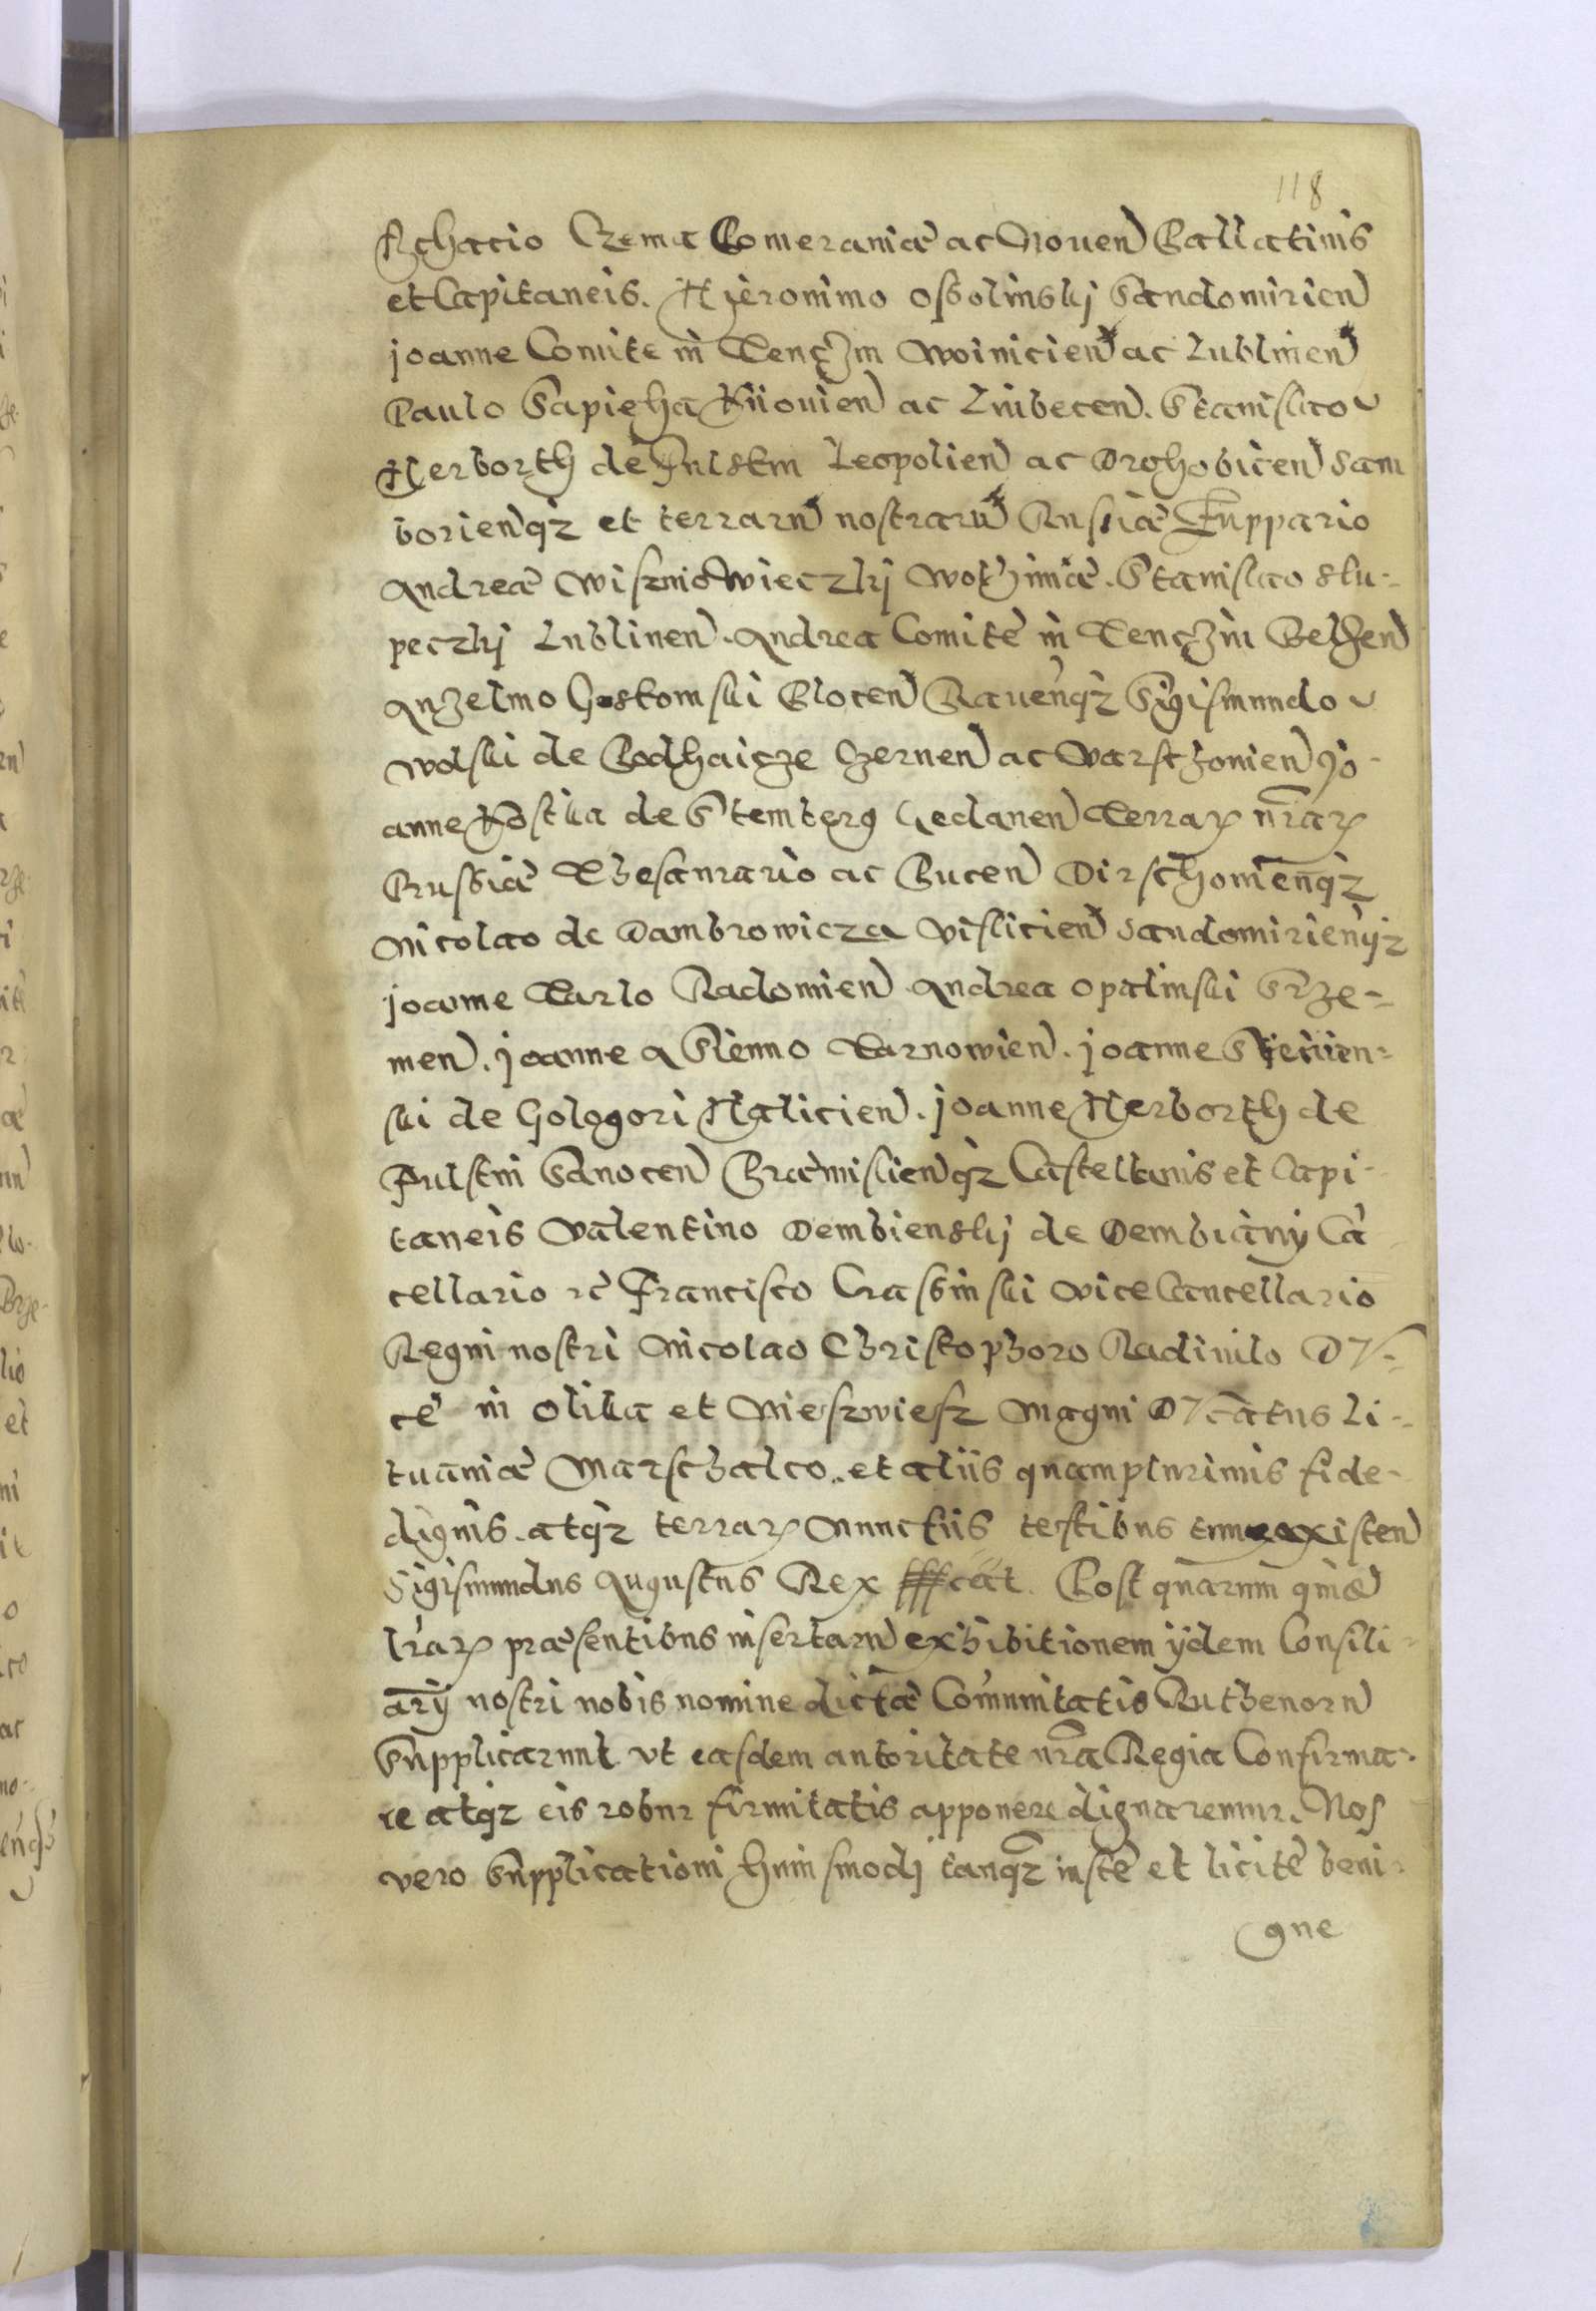 118
Achacio Czema Pomeraniæ ac Nouen Pallatinis
et Capitaneis. Hieronimo Ossolinskj Sandomirien
joanne Comite in Tenczin Woinicien ac Lublinen
Paulo Sapieha Kiiouien ac Liubecen. Stanislao
Herborth de Fulstin Leopolien ac Drohobicen Sam
borienqz et terrarū nostrarū Russiæ Zuppario
Andreæ Wiszniowieczkj Wolhiniæ. Stanislao Slu-
peczkj Lublinen. Andrea Comite in Tenczin Belzen
Anzelmo Gostomski Plocen Rauenqz Sigismundo
Wolski de Podhaicze Czernen ac Varschouien Jo-
anne Kostka de Stemberg Gedanen Terrar nrar
Prussiæ Thesaurario ac Pucen Dirschouienqz
Nicolao de Dambrowicza Vislicien Sandomirienqz
joanne Tarlo Radomien Andrea Opalinski Srze-
men. joanne a Sienno Tarnowien. joanne Sieniien-
ski de Gologori Halicien. joanne Herborth de
Fulstin Sanocen Præmislienqz Castellanis et Capi-
taneis Valentino Dembienskj de Dembiany Cā
cellario rc Francisco Crassinski Vice Cancellario
Regni nostri Nicolao Christophoro Radiuilo DV-
ce in Olika et Nieszwiesz Magni DVcatus Li-
tuaniæ Marschalco. et aliis quamplurimis fide-
dignis. atqz terrar Nunctiis testibus existen
Sigismundus Augustus Rex Post quarum quidē
lrar præsentibus insertarū exhibitionem ijdem Consili-
arij nostri nobis nomine dictæ Comunitatis Ruthenorū
Supplicarunt vt easdem autoritate nra Regia Confirma-
re atqz eis robur firmitatis apponere dignaremur. Nos
vero Supplicationi huiusmodj tanqz iuste et licite beni-
gne